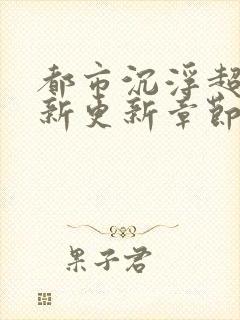 都市沉浮超
新更新章節
果子君